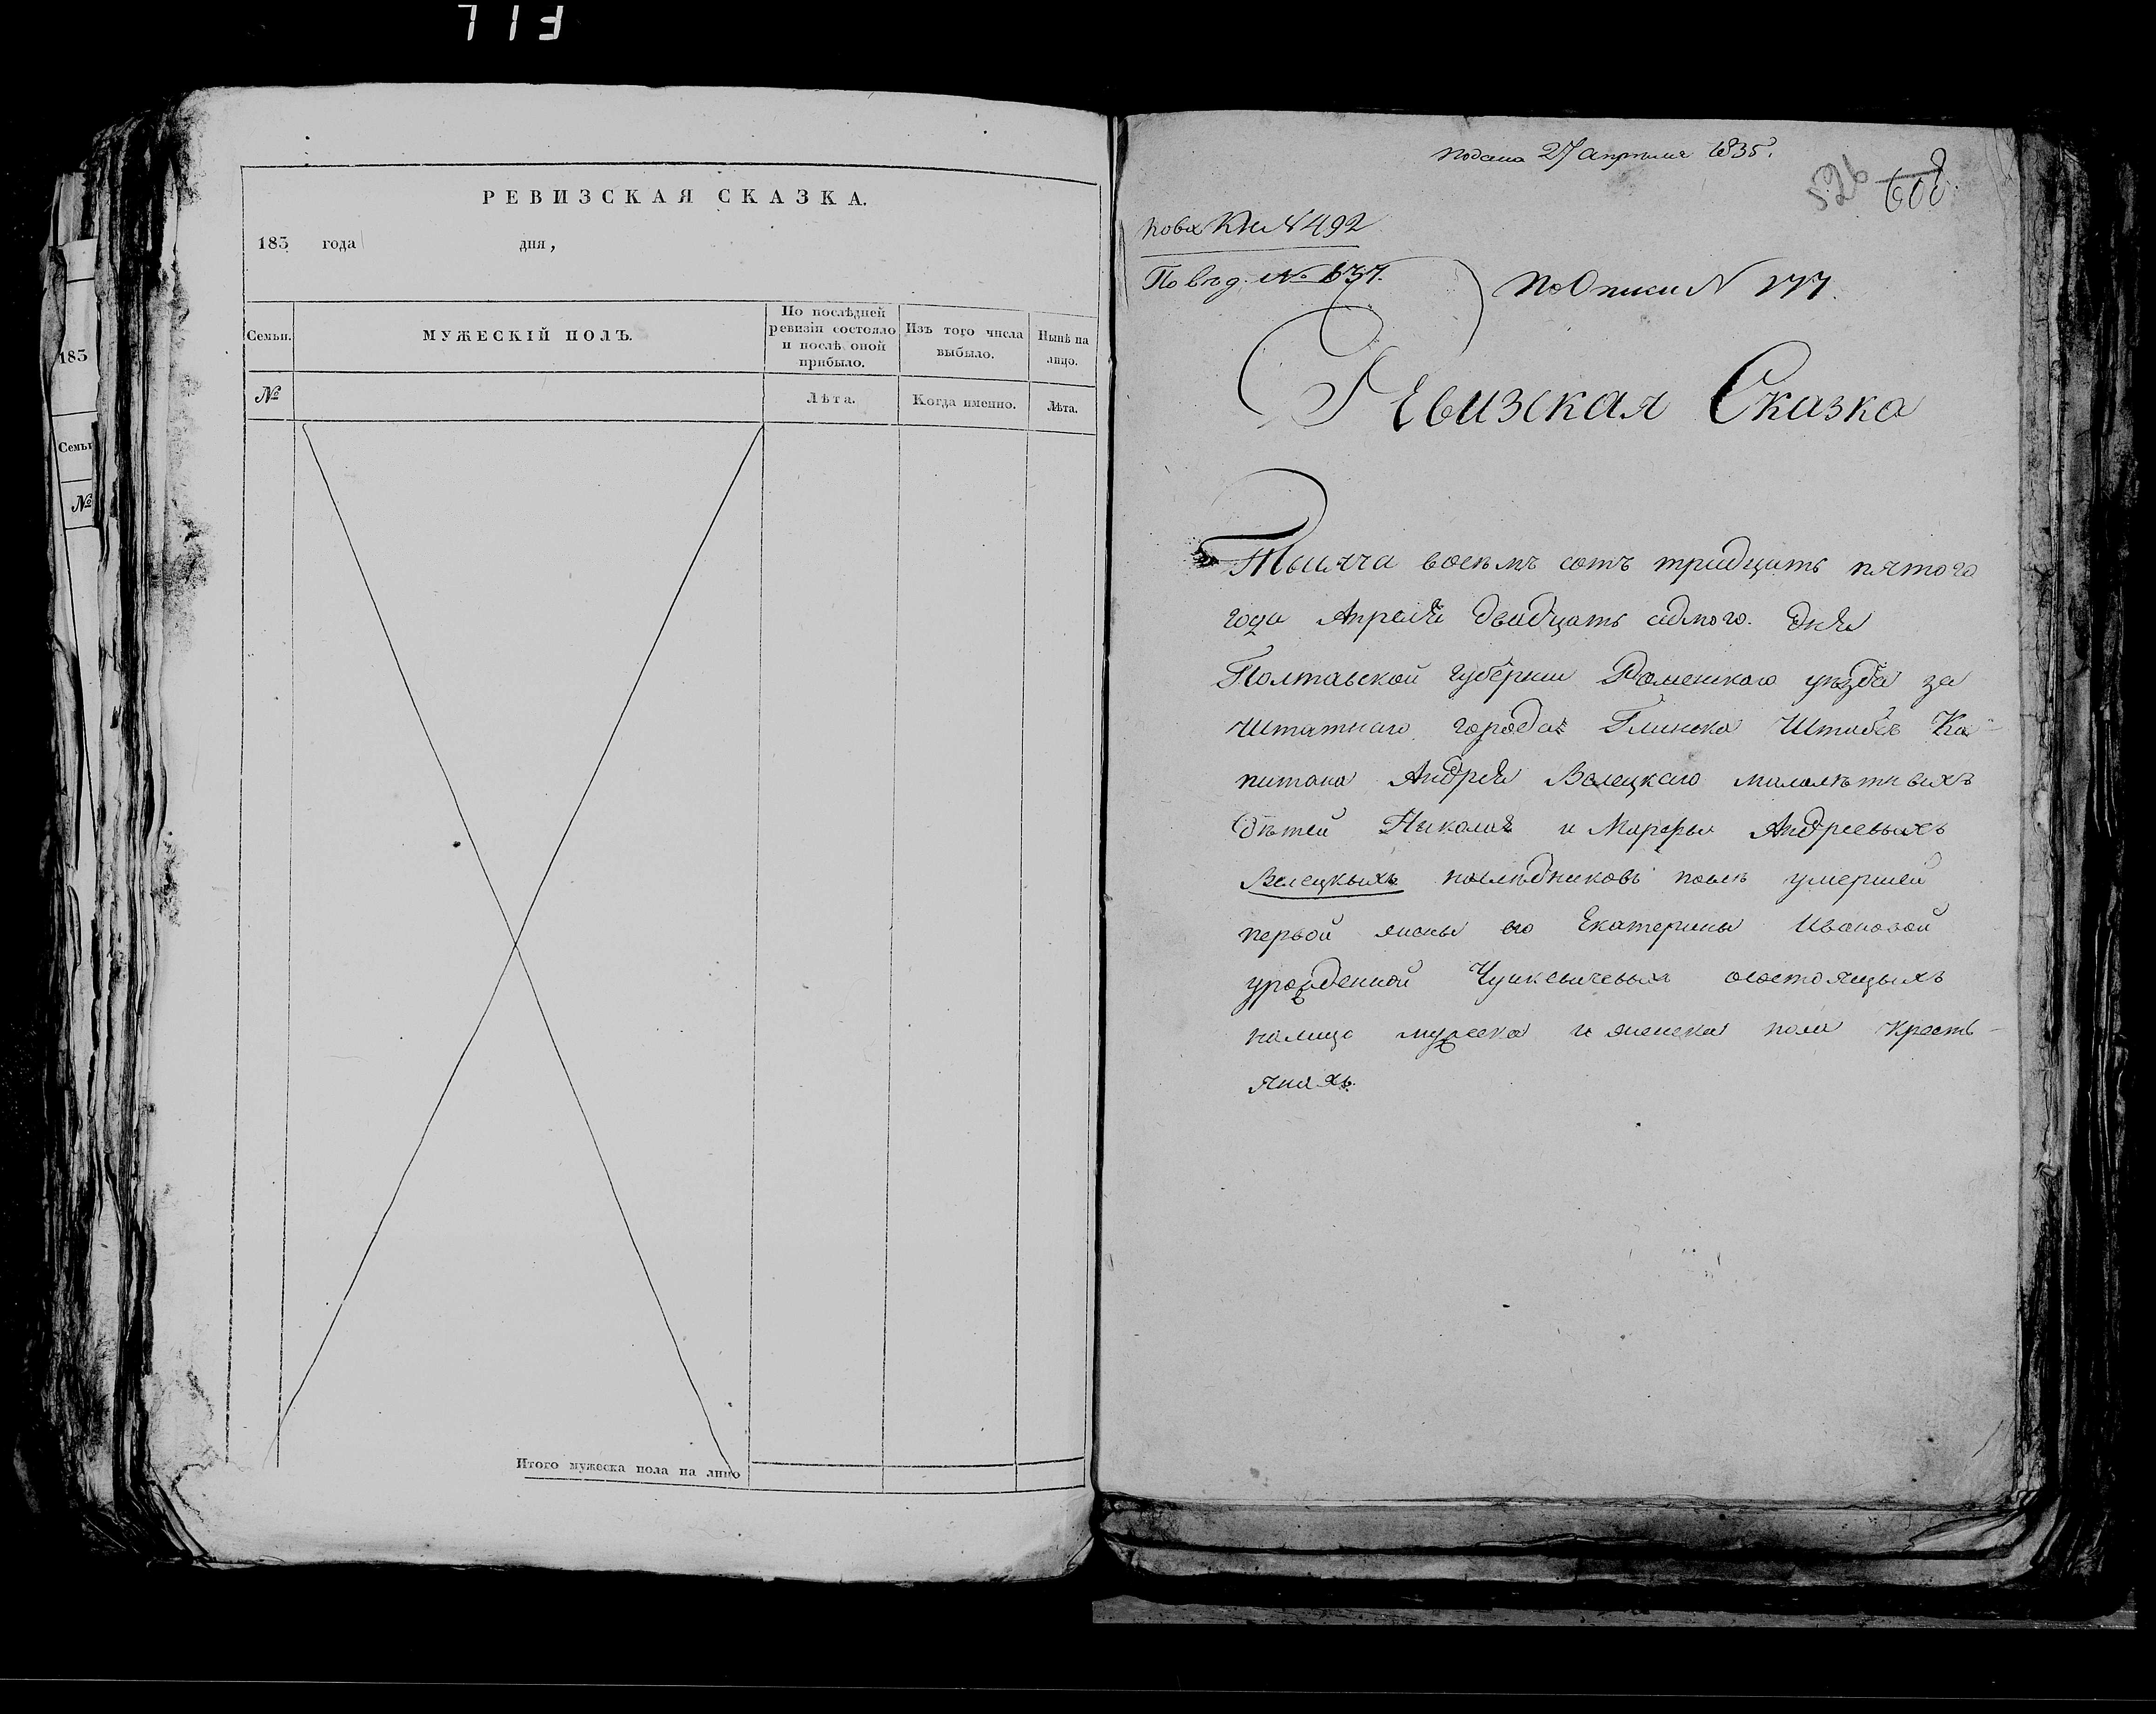 РЕВИЗСКАЯ СКАЗКА.
183 года дня,
Семьи.
МУЖЕСКІЙ ПОЛЪ.
По послѣдней ревизіи состояло и послѣ оной прибыло.
Изъ того числа выбыло.
Нынѣ на лицо.
№
Лѣта.
Когда именно.
Лѣта.
Итого мужеска пола на лицо
183
Семьи
№
подана 27 апреля 1835.
526
608
№ 492
По вѣд. № 637.
По Описи № 177.
Ревизская Сказка
Тысяча восемъ сотъ тридцать пятого
года Апреля двадцать седмого. дня
Полтавской губернии Роменского уѣзда за
Штатнаго города Глинска Штабсъ Ка
питана Андрея Велецкаго малолѣтныхъ
дѣтей Николая и Марфы Андреевыхъ
Велецкыхъ наслѣдниковъ послѣ умершей
первой жены его Екатерины Ивановой
урожденной Чуйкевичевыхъ состоящыхъ
налицо мужеска и женска пола Кресть
янахъ.